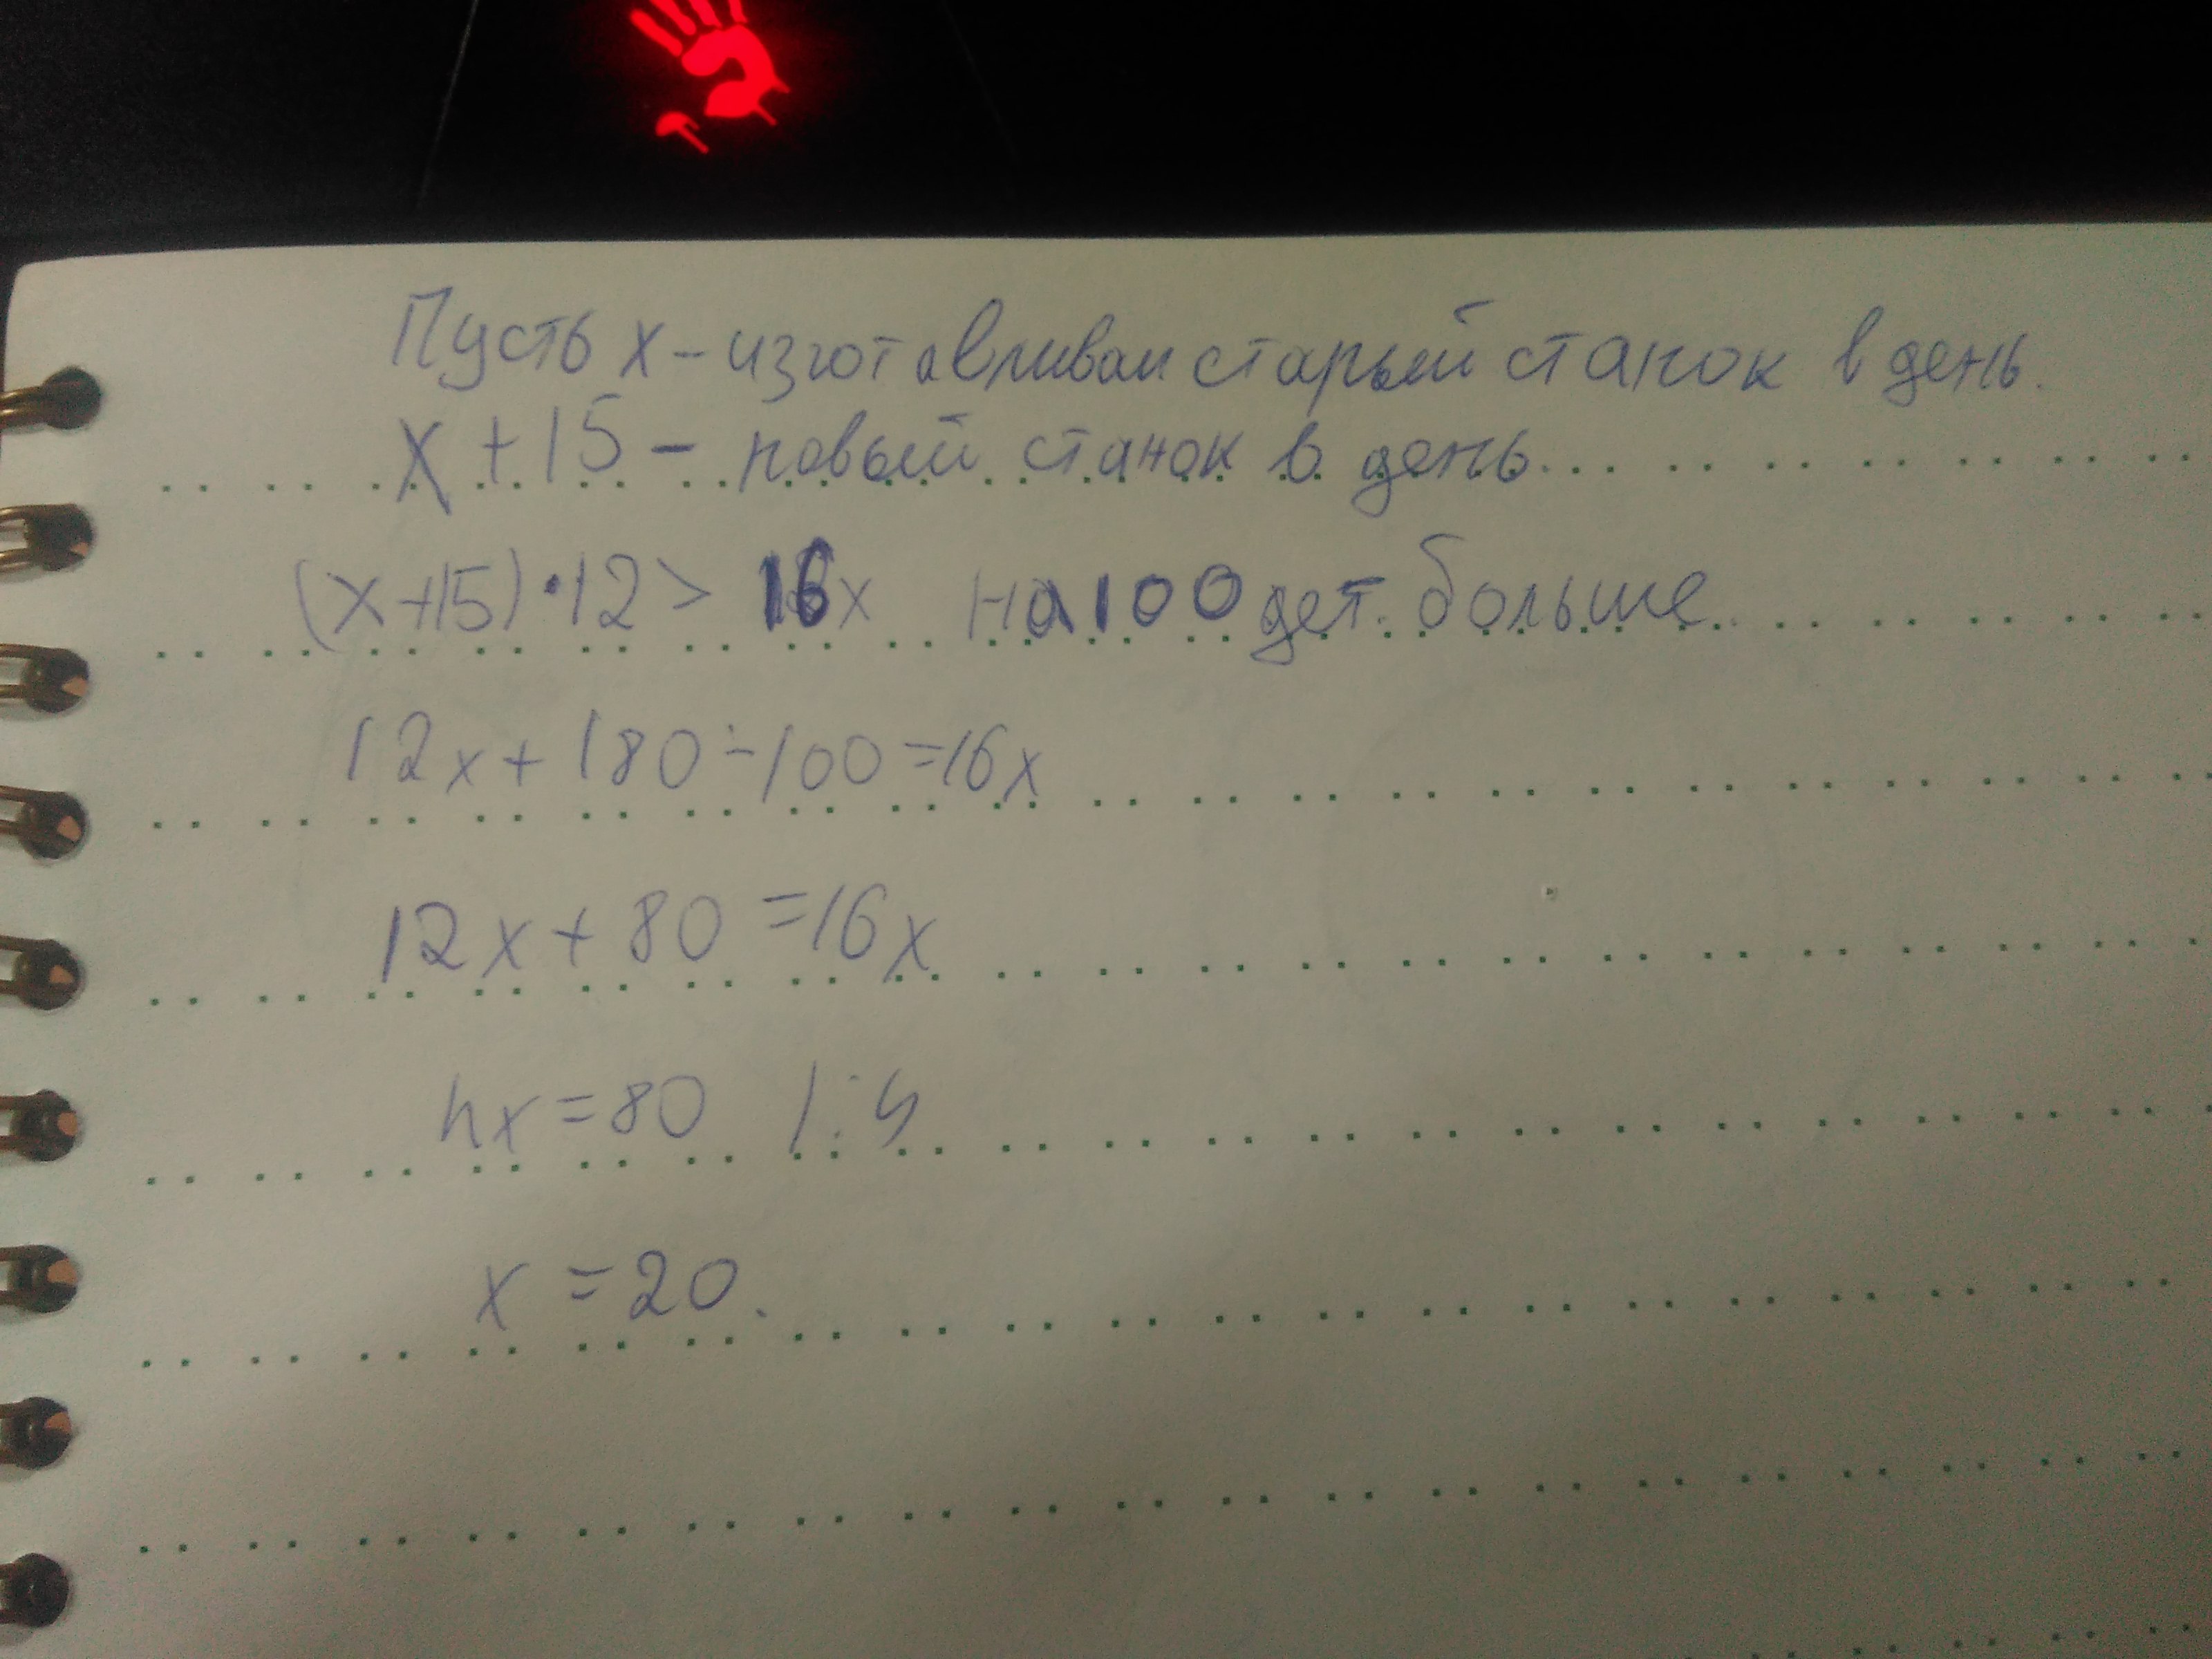 Пусть x - изготавливал старый станок в день.
x + 15 - новый станок в день.
(x+15)·12 > 16x на 100 дет. больше.
12x + 180 - 100 = 16x
12x + 80 = 16x
4x = 80 | : 4
x = 20.